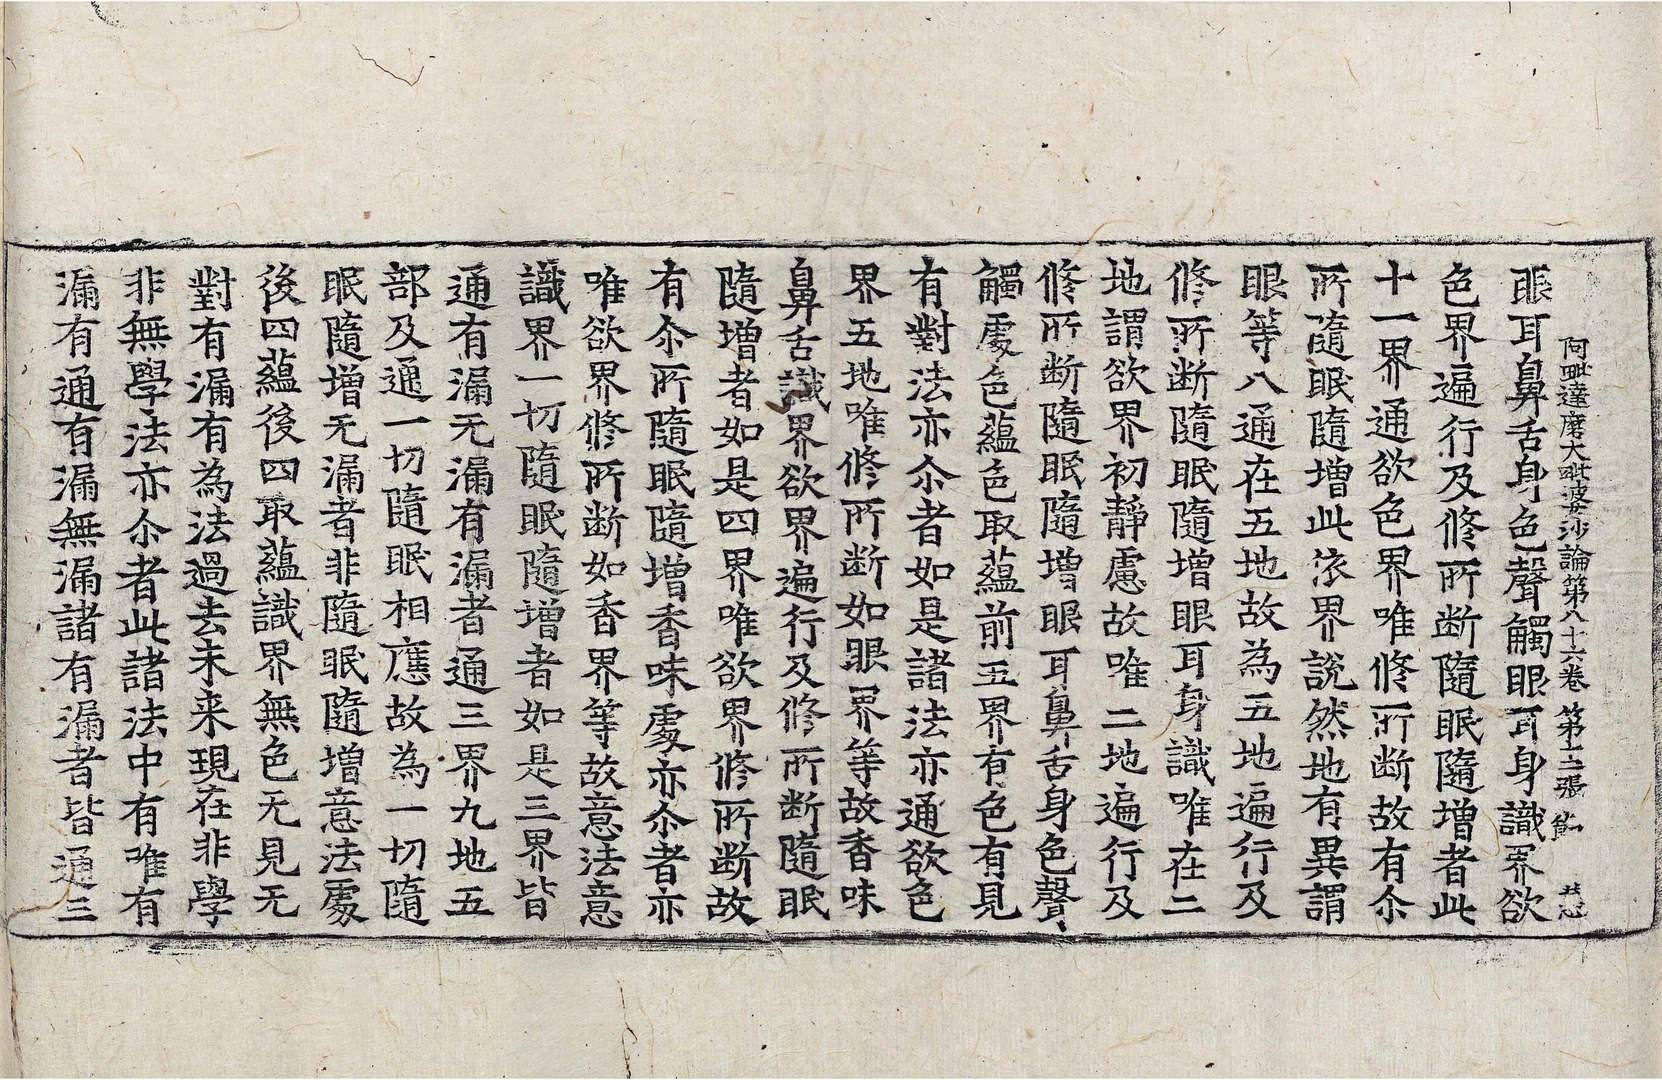 阿毗達磨大毗婆沙論第八十六卷 第十二張 䬃 共心
眼耳鼻舌身色聲觸眼耳身識界欲
色界遍行及修所斷隨眠隨增者此
十一界通欲色界唯修所斷故有尒
所隨眠隨增此依界說然地有異謂
眼等八通在五地故為五地遍行及
修所斷隨眠隨增眼耳身識唯在二
地謂欲界初靜慮故唯二地遍行及
修所斷隨眠隨增眼耳鼻舌身色聲
觸處色蘊色取蘊前五界有色有見
有對法亦尒者如是諸法亦通欲色
界五地唯修所斷如眼界等故香味
鼻舌識界欲界遍行及修所斷隨眠
隨增者如是四界唯欲界修所斷故
有尒所隨眠隨增香味處亦尒者亦
唯欲界修所斷如香界等故意法意
識界一切隨眠隨增者如是三界皆
通有漏无漏有漏者通三界九地五
部及通一切隨眠相應故為一切隨
眠隨增无漏者非隨眠隨增意法處
後四蘊後四取蘊識界無色无見无
對有漏有為法過去未来現在非學
非無學法亦尒者此諸法中有唯有
漏有通有漏無漏諸有漏者皆通三